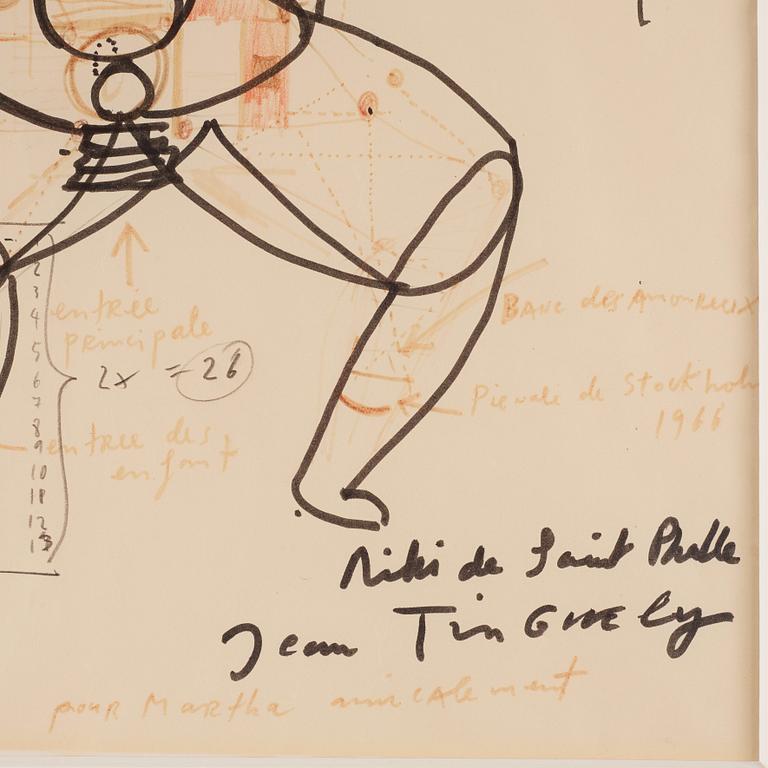 2
3
4
5
6
7
8
9
10
11
12
13
entrée
principale
2x = 26
entree des
enfant
Banc des Amoureux
de Stockholm
1966
Niki de Saint Phalle
Jean TinGuely
pour Martha amicalement